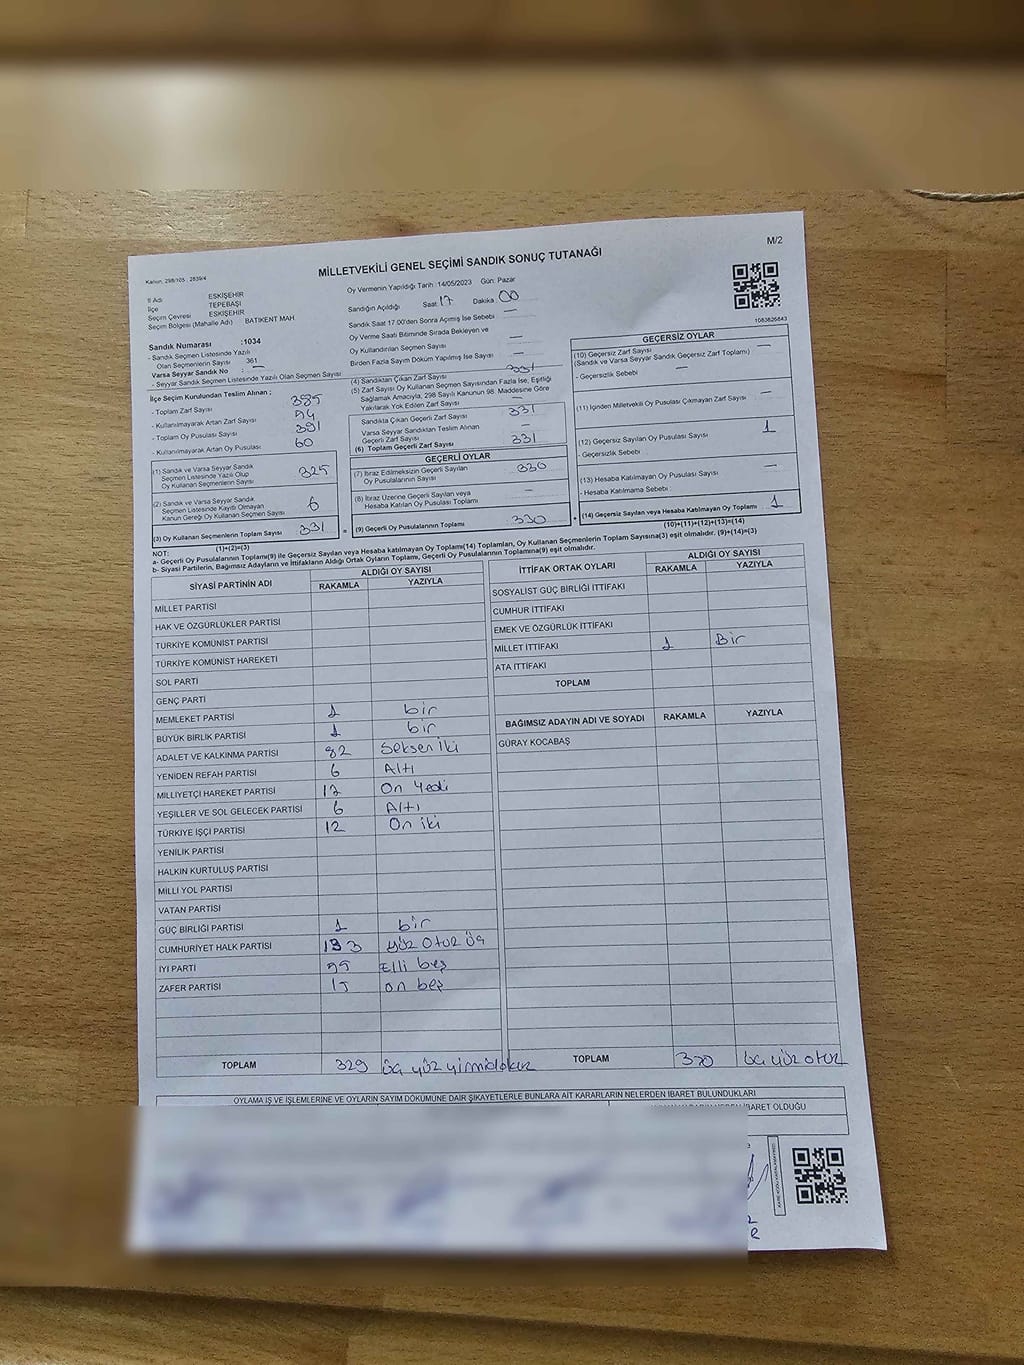 M/2
MİLLETVEKİLİ GENEL SEÇİMİ SANDIK SONUÇ TUTANAĞI
Kanun: 298/105 , 2839/4
Oy Vermenin Yapıldığı Tarih 14/05/2023 Gün: Pazar
İl Adı ESKİŞEHİR
İlçe TEPEBAŞI
Seçim Çevresi ESKİŞEHİR
Seçim Bölgesi (Mahalle Adı) BATIKENT MAH
Sandık Numarası :1034
- Sandık Seçmen Listesinde Yazılı
Olan Seçmenlerin Sayısı 361
Varsa Seyyar Sandık No : —
- Seyyar Sandık Seçmen Listesinde Yazılı Olan Seçmen Sayısı
İlçe Seçim Kurulundan Teslim Alınan :
- Toplam Zarf Sayısı 385
- Kullanılmayarak Artan Zarf Sayısı
- Toplam Oy Pusulası Sayısı 391
- Kullanılmayarak Artan Oy Pusulası 60
(1) Sandık ve Varsa Seyyar Sandık
Seçmen Listesinde Yazılı Olup
Oy Kullanan Seçmenlerin Sayısı 325
(2) Sandık ve Varsa Seyyar Sandık
Seçmen Listesinde Kayıtlı Olmayan
Kanun Gereği Oy Kullanan Seçmen Sayısı 6
(3) Oy Kullanan Seçmenlerin Toplam Sayısı 331
(1)+(2)=(3)
Sandığın Açıldığı Saat 17 Dakika 00
Sandık Saat 17.00'den Sonra Açılmış İse Sebebi —
Oy Verme Saati Bitiminde Sırada Bekleyen ve
Oy Kullandırılan Seçmen Sayısı —
Birden Fazla Sayım Döküm Yapılmış İse Sayısı —
(4) Sandıktan Çıkan Zarf Sayısı 331
(5) Zarf Sayısı Oy Kullanan Seçmen Sayısından Fazla İse, Eşitliği
Sağlamak Amacıyla, 298 Sayılı Kanunun 98. Maddesine Göre
Yakılarak Yok Edilen Zarf Sayısı —
Sandıkta Çıkan Geçerli Zarf Sayısı 331
Varsa Seyyar Sandıktan Teslim Alınan
Geçerli Zarf Sayısı —
(6) Toplam Geçerli Zarf Sayısı 331
GEÇERLİ OYLAR
(7) İtiraz Edilmeksizin Geçerli Sayılan
Oy Pusulalarının Sayısı 330
(8) İtiraz Üzerine Geçerli Sayılan veya
Hesaba Katılan Oy Pusulası Toplamı —
= (9) Geçerli Oy Pusulalarının Toplamı 330
1083826843
GEÇERSİZ OYLAR
(10) Geçersiz Zarf Sayısı —
(Sandık ve Varsa Seyyar Sandık Geçersiz Zarf Toplamı)
- Geçersizlik Sebebi —
(11) İçinden Milletvekili Oy Pusulası Çıkmayan Zarf Sayısı —
(12) Geçersiz Sayılan Oy Pusulası Sayısı 1
- Geçersizlik Sebebi
(13) Hesaba Katılmayan Oy Pusulası Sayısı —
- Hesaba Katılmama Sebebi :
+ (14) Geçersiz Sayılan veya Hesaba Katılmayan Oy Toplamı 1
(10)+(11)+(12)+(13)=(14)
NOT:
a- Geçerli Oy Pusulalarının Toplamı(9) ile Geçersiz Sayılan veya Hesaba katılmayan Oy Toplamı(14) Toplamları, Oy Kullanan Seçmenlerin Toplam Sayısına(3) eşit olmalıdır. (9)+(14)=(3)
b- Siyasi Partilerin, Bağımsız Adayların ve İttifakların Aldığı Ortak Oyların Toplamı, Geçerli Oy Pusulalarının Toplamına(9) eşit olmalıdır.
SİYASİ PARTİNİN ADI ALDIĞI OY SAYISI
RAKAMLA YAZIYLA
MİLLET PARTİSİ
HAK VE ÖZGÜRLÜKLER PARTİSİ
TÜRKİYE KOMÜNİST PARTİSİ
TÜRKİYE KOMÜNİST HAREKETİ
SOL PARTİ
GENÇ PARTİ
MEMLEKET PARTİSİ 1 bir
BÜYÜK BİRLİK PARTİSİ 1 bir
ADALET VE KALKINMA PARTİSİ 82 Seksen iki
YENİDEN REFAH PARTİSİ 6 Altı
MİLLİYETÇİ HAREKET PARTİSİ 17 On Yedi
YEŞİLLER VE SOL GELECEK PARTİSİ 6 Altı
TÜRKİYE İŞÇİ PARTİSİ 12 On iki
YENİLİK PARTİSİ
HALKIN KURTULUŞ PARTİSİ
MİLLİ YOL PARTİSİ
VATAN PARTİSİ
GÜÇ BİRLİĞİ PARTİSİ 1 bir
CUMHURİYET HALK PARTİSİ 133 yüz Otuz üç
İYİ PARTİ 55 Elli beş
ZAFER PARTİSİ 15 on beş
TOPLAM 329 üç yüz yirmidokuz
İTTİFAK ORTAK OYLARI ALDIĞI OY SAYISI
RAKAMLA YAZIYLA
SOSYALİST GÜÇ BİRLİĞİ İTTİFAKI
CUMHUR İTTİFAKI
EMEK VE ÖZGÜRLÜK İTTİFAKI
MİLLET İTTİFAKI 1 Bir
ATA İTTİFAKI
TOPLAM
BAĞIMSIZ ADAYIN ADI VE SOYADI RAKAMLA YAZIYLA
GÜRAY KOCABAŞ
TOPLAM 330 üç yüz otuz
OYLAMA İŞ VE İŞLEMLERİNE VE OYLARIN SAYIM DÖKÜMÜNE DAİR ŞİKAYETLERLE BUNLARA AİT KARARLARIN NELERDEN İBARET BULUNDUKLARI
İBARET OLDUĞU